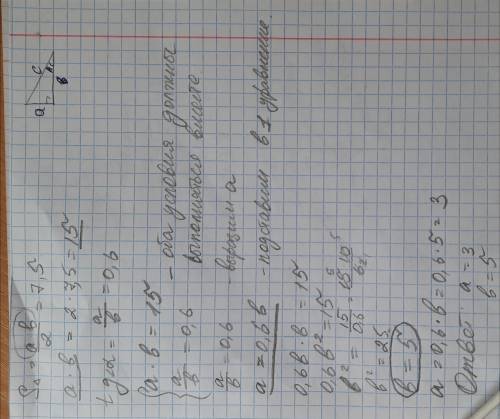 S▵ = a·b/2 = 7,5
a·b = 2·7,5 = 15
tgα = a/в = 0,6
{ a·в = 15 – оба условия должны
{ a/в = 0,6 выполняться вместе
a/в = 0,6 - выразим a
a = 0,6в - подставим в 1 уравнение.
0,6в·в = 15
0,6в² = 15
в² = 15/0,6 = 15·10⁵/6₂
в² = 25
в = 5
a = 0,6·в = 0,6·5 = 3
Ответ: a = 3
в = 5
a
c
в